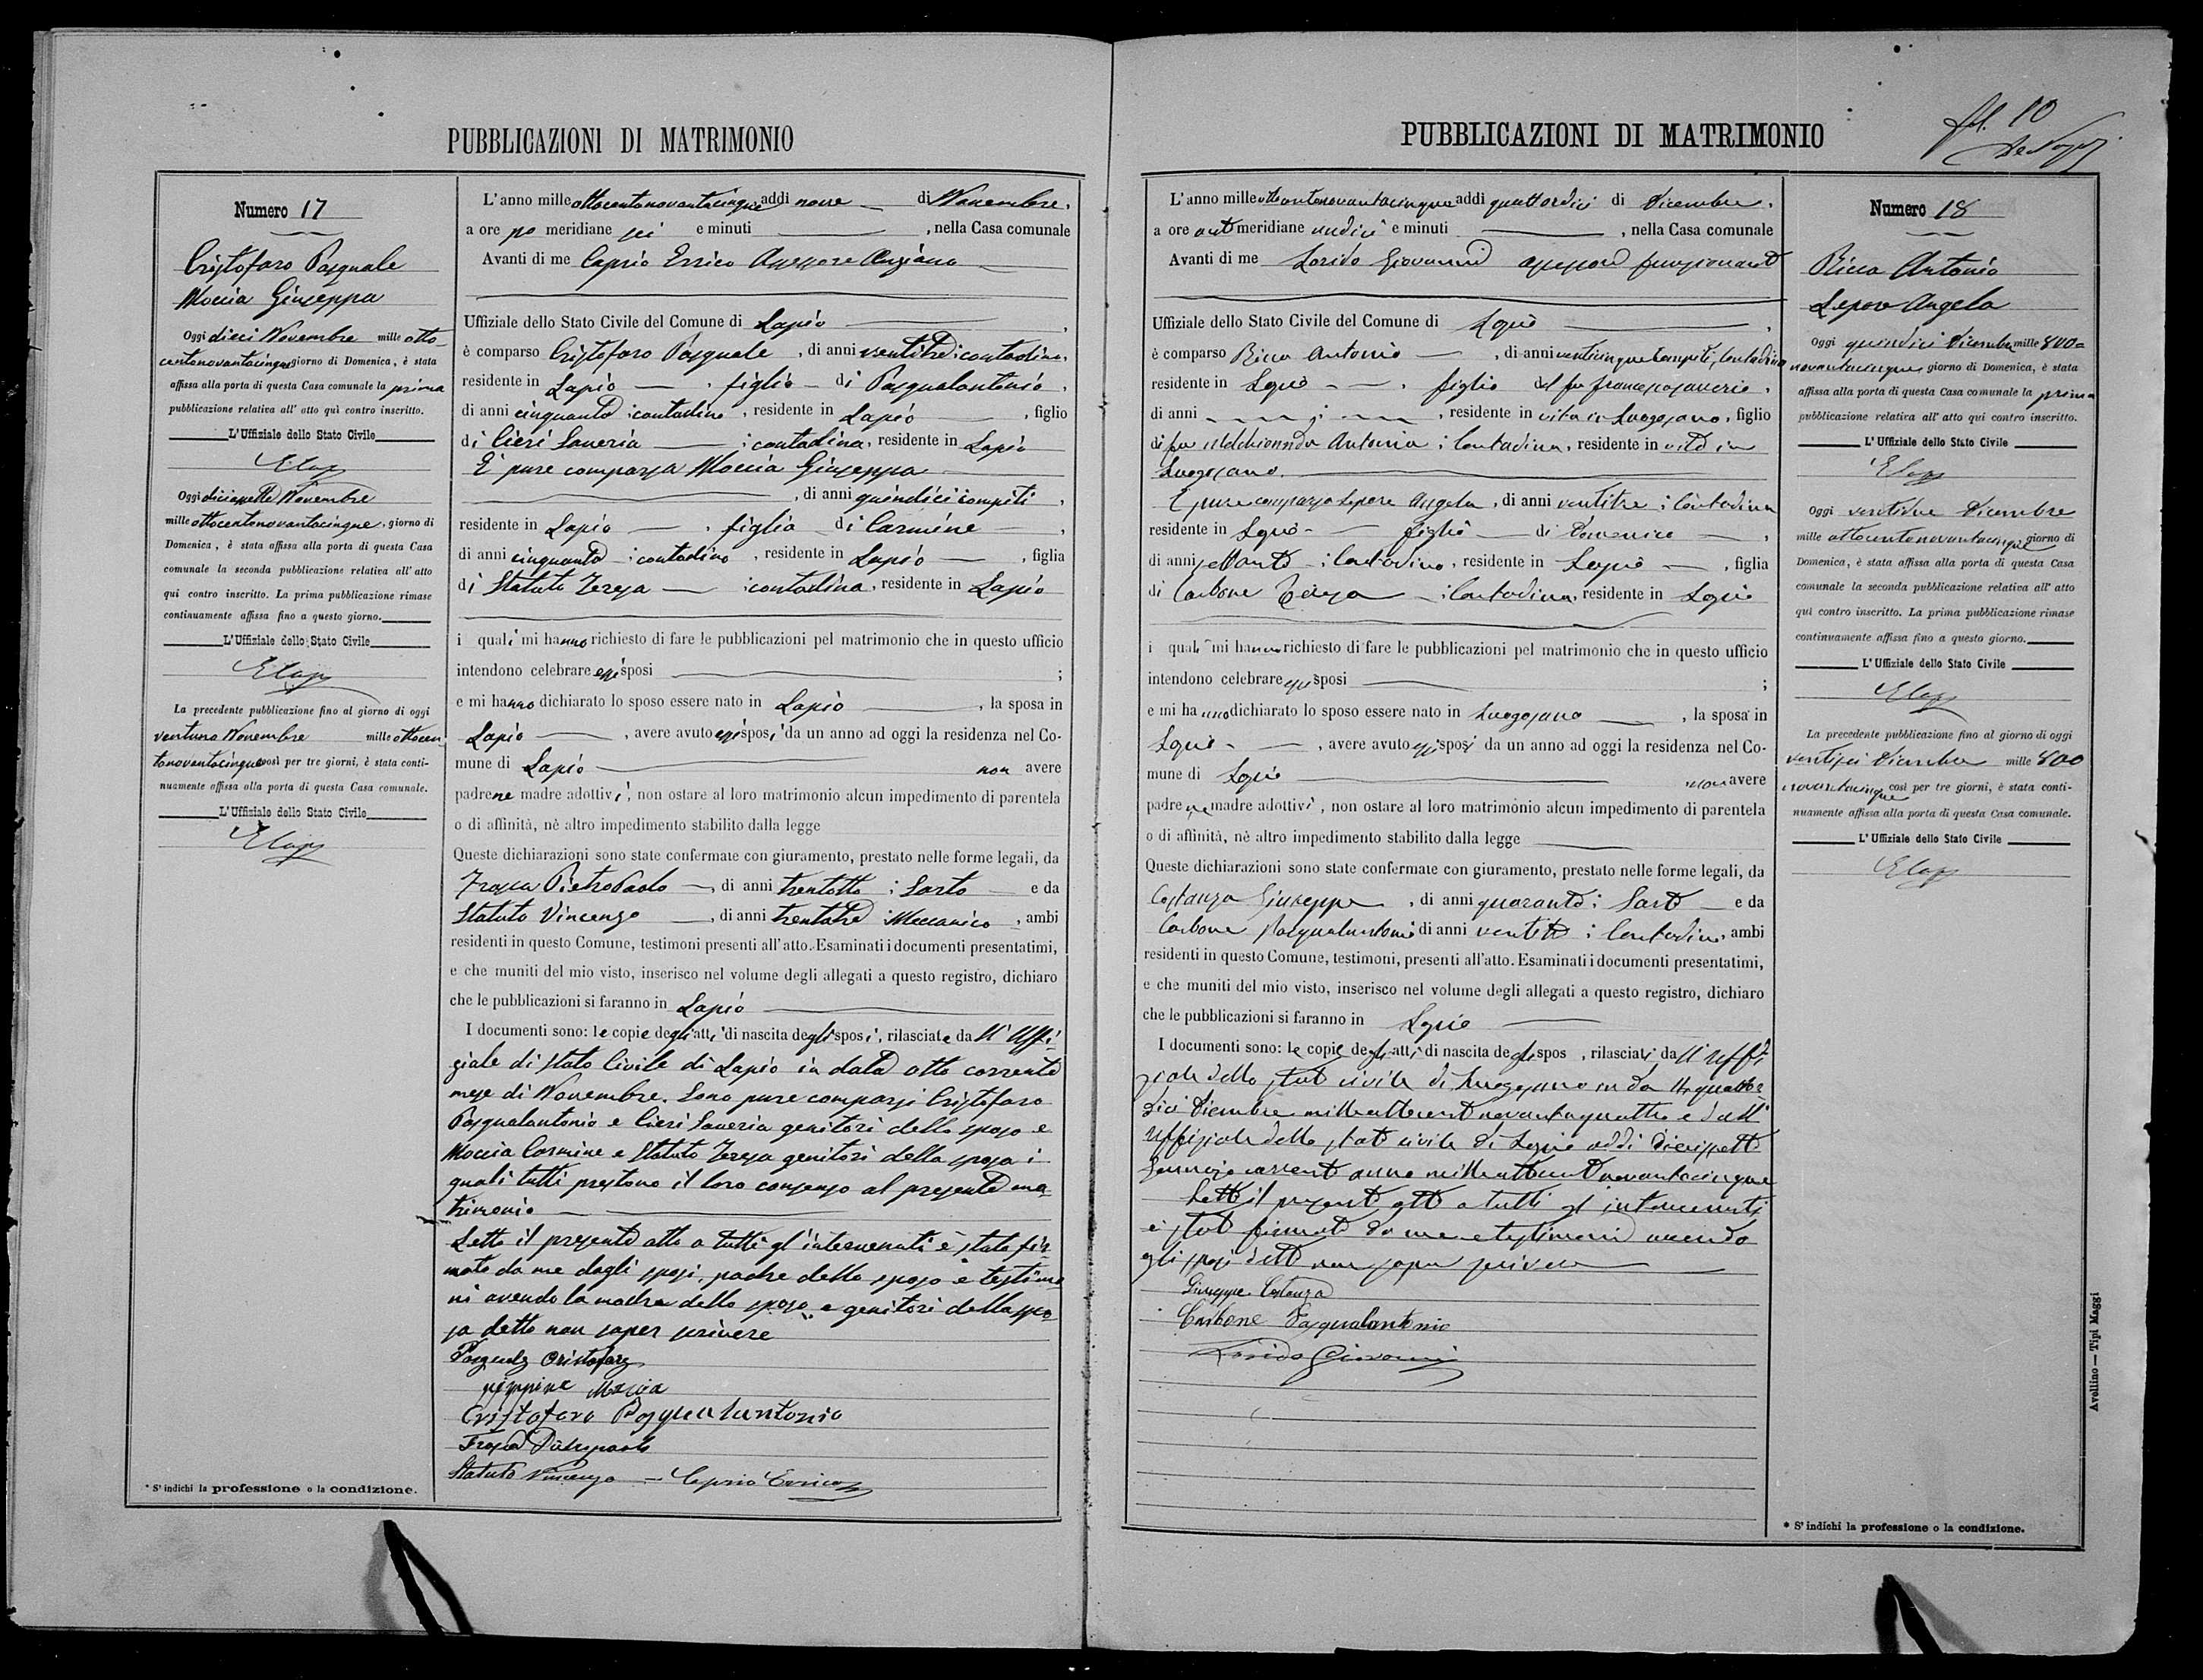 PUBBLICAZIONI DI MATRIMONIO
Numero 17
Cristofaro Pasquale
Moccia Giuseppa
Oggi dieci Novembre mille otto-
centonovantacinque giorno di Domenica, è stata
affissa alla porta di questa Casa comunale la prima
pubblicazione relativa all' atto quì contro inscritto.
L'Uffiziale dello Stato Civile
Oggi diciassette Novembre
mille ottocentonovantacinque, giorno di
Domenica, è stata affissa alla porta di questa Casa
comunale la seconda pubblicazione relativa all' atto
qui contro inscritto. La prima pubblicazione rimase
continuamente affissa fino a questo giorno.
L'Uffiziale dello Stato Civile
La precedente pubblicazione fino al giorno di oggi
ventuno Novembre mille ottocen
tonovantacinque così per tre giorni, è stata conti-
nuamente affissa alla porta di questa Casa comunale.
L'Uffiziale dello Stato Civile
* S' indichi la professione o la condizione.
L'anno mille ottocentonovantacinque addi nove di Novembre,
a ore po meridiane sei e minuti , nella Casa comunale
Avanti di me Caprio Errico Assessore Anziano
Uffiziale dello Stato Civile del Comune di Lapio ,
è comparso Cristofaro Pasquale , di anni ventitre : contadino,
residente in Lapio , figlio di Pasqualantonio ,
di anni cinquanta : contadino , residente in Lapio , figlio
di Cieri Saveria : contadina, residente in Lapio
E' pure comparsa Moccia Giuseppa
, di anni quindici compiti ,
residente in Lapio , figlia di Carmine ,
di anni cinquanta : contadino , residente in Lapio , figlia
di Statuto Teresa : contadina, residente in Lapio
i quali mi hanno richiesto di fare le pubblicazioni pel matrimonio che in questo ufficio
intendono celebrare essi sposi ;
e mi hanno dichiarato lo sposo essere nato in Lapio , la sposa in
Lapio , avere avuto essi sposi da un anno ad oggi la residenza nel Co-
mune di Lapio non avere
padre ne madre adottivi, non ostare al loro matrimonio alcun impedimento di parentela
o di affinità, nè altro impedimento stabilito dalla legge
Queste dichiarazioni sono state confermate con giuramento, prestato nelle forme legali, da
PietroPaolo , di anni trentotto : Sarto e da
Statuto Vincenzo , di anni trentatre : Meccanico , ambi
residenti in questo Comune, testimoni presenti all'atto. Esaminati i documenti presentatimi,
e che muniti del mio visto, inserisco nel volume degli allegati a questo registro, dichiaro
che le pubblicazioni si faranno in Lapio
I documenti sono: le copie degli atti di nascita degli sposi, rilasciate dall' Uffi-
ziale di stato Civile di Lapio in data otto corrente
mese di Novembre. Sono pure comparsi Cristofaro
Pasqualantonio e Cieri Saveria genitori dello sposo e
Moccia Carmine e Statuto Teresa genitori della sposa i
quali tutti prestano il loro consenso al presente ma
trimonio
Letto il presente atto a tutti gl' intervenuti è stato fir
mato da me dagli sposi, padre dello sposo e testimo
ni avendo la madre dello sposo e genitori della spo
sa detto non saper scrivere
Cristofaro Pasqualantonio
Statuto Vincenzo — Caprio Errico
PUBBLICAZIONI DI MATRIMONIO
10
L'anno mille ottocentonovantacinque addi quattordici di Dicembre ,
a ore anti meridiane undici e minuti , nella Casa comunale
Avanti di me Losido Giovanni assessore funzionante
Uffiziale dello Stato Civile del Comune di Lapio ,
è comparso Ricca Antonio , di anni venticinque compiti, Contadino
residente in Lapio , figlio del fu Francescosaverio ,
di anni , residente in vita in Luogosano, figlio
di fu Melchionna Antonia : Contadina, residente in vita in
Luogosano.
E' pure comparsa Lepore Angela , di anni ventitre : Contadina
residente in Lapio figlia di Domenico ,
di anni settanta : Contadino, residente in Lapio , figlia
di Carbone Teresa : Contadina, residente in Lapio
i quali mi hanno richiesto di fare le pubblicazioni pel matrimonio che in questo ufficio
intendono celebrare essi sposi ;
e mi hanno dichiarato lo sposo essere nato in Luogosano , la sposa in
Lapio , avere avuto essi sposi da un anno ad oggi la residenza nel Co-
mune di Lapio non avere
padre ne madre adottivi , non ostare al loro matrimonio alcun impedimento di parentela
o di affinità, nè altro impedimento stabilito dalla legge
Queste dichiarazioni sono state confermate con giuramento, prestato nelle forme legali, da
Costanza Giuseppe , di anni quaranta : Sarto e da
Carbone Pasqualantonio di anni : Contadino, ambi
residenti in questo Comune, testimoni, presenti all'atto. Esaminati i documenti presentatimi,
e che muniti del mio visto, inserisco nel volume degli allegati a questo registro, dichiaro
che le pubblicazioni si faranno in Lapio
I documenti sono: le copie degli atti di nascita degli spos , rilasciati dall' Uffi
ziale dello stato civile di Luogosano in data quattor
dici Dicembre milleottocentonovantaquattro e dall'
Uffiziale dello stato civile di Lapio addi diciassette
corrente anno milleottocentonovantacinque
Letto il presente atto a tutti gl' intervenuti
è stato firmato da me e testimoni avendo
gli sposi detto non saper scrivere
Giuseppe Costanza
Carbone Pasqualantonio
Losido Giovanni
Numero 18
Ricca Antonio
Lepore Angela
Oggi quindici Dicembre mille 800=
novantacinque, giorno di Domenica, è stata
affissa alla porta di questa Casa comunale la prima
pubblicazione relativa all' atto qui contro inscritto.
L' Uffiziale dello Stato Civile
Oggi ventidue Dicembre
mille ottocentonovantacinque giorno di
Domenica, è stata affissa alla porta di questa Casa
comunale la seconda pubblicazione relativa all' atto
quì contro inscritto. La prima pubblicazione rimase
continuamente affissa fino a questo giorno.
L' Uffiziale dello Stato Civile
La precedente pubblicazione fino al giorno di oggi
ventisei Dicembre mille 800
novantacinque così per tre giorni, è stata conti-
nuamente affissa alla porta di questa Casa comunale.
L' Uffiziale dello Stato Civile
* S' indichi la professione o la condizione.
Avellino — Tipi Maggi